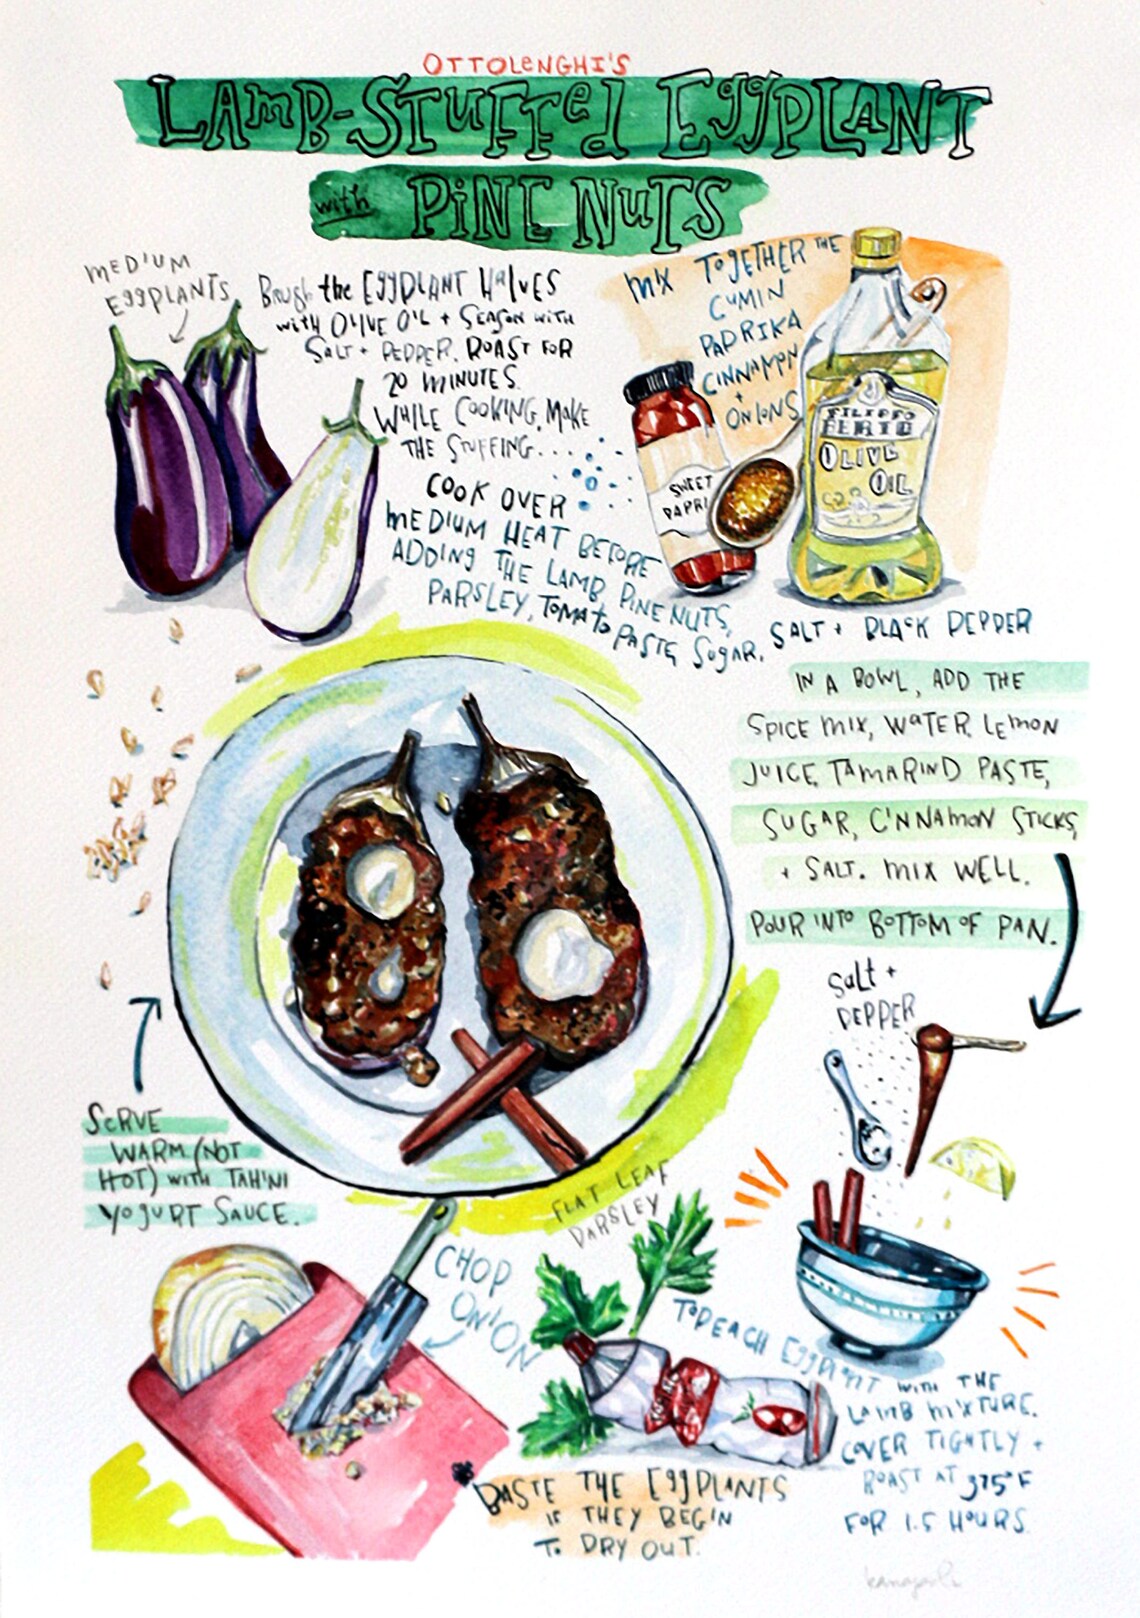 OTTOLENGHI'S
LAMB-STUFFED EGGPLANT
with PINE NUTS
MEDIUM
EGGPLANTS
Brush the EGGPLANT HALVES
WITH OLIVE OIL + SEASON WITH
SALT + PEPPER. ROAST FOR
20 MINUTES.
WHILE COOKING, MAKE
THE STUFFING...
COOK OVER
MEDIUM HEAT BEFORE
ADDING THE LAMB, PINE NUTS,
PARSLEY, TOMATO PASTE, SUGAR,
SALT + BLACK PEPPER
MIX TOGETHER THE
CUMIN
PAPRIKA
CINNAMON
+
ONIONS
SWEET
PAPRI
FILIPPO
BERIO
OLIVE
OIL
IN A BOWL, ADD THE
SPICE MIX, WATER, LEMON
JUICE, TAMARIND PASTE,
SUGAR, CINNAMON STICKS,
+ SALT. MIX WELL.
POUR INTO BOTTOM OF PAN.
SALT +
PEPPER
TO PEACH EGGPLANT WITH THE
LAMB MIXTURE.
COVER TIGHTLY +
ROAST AT 375°F
FOR 1.5 HOURS.
FLAT LEAF
PARSLEY
CHOP
ONION
BASTE THE EGGPLANTS
IF THEY BEGIN
TO DRY OUT.
SERVE
WARM (NOT
HOT) WITH TAHINI
YOGURT SAUCE.